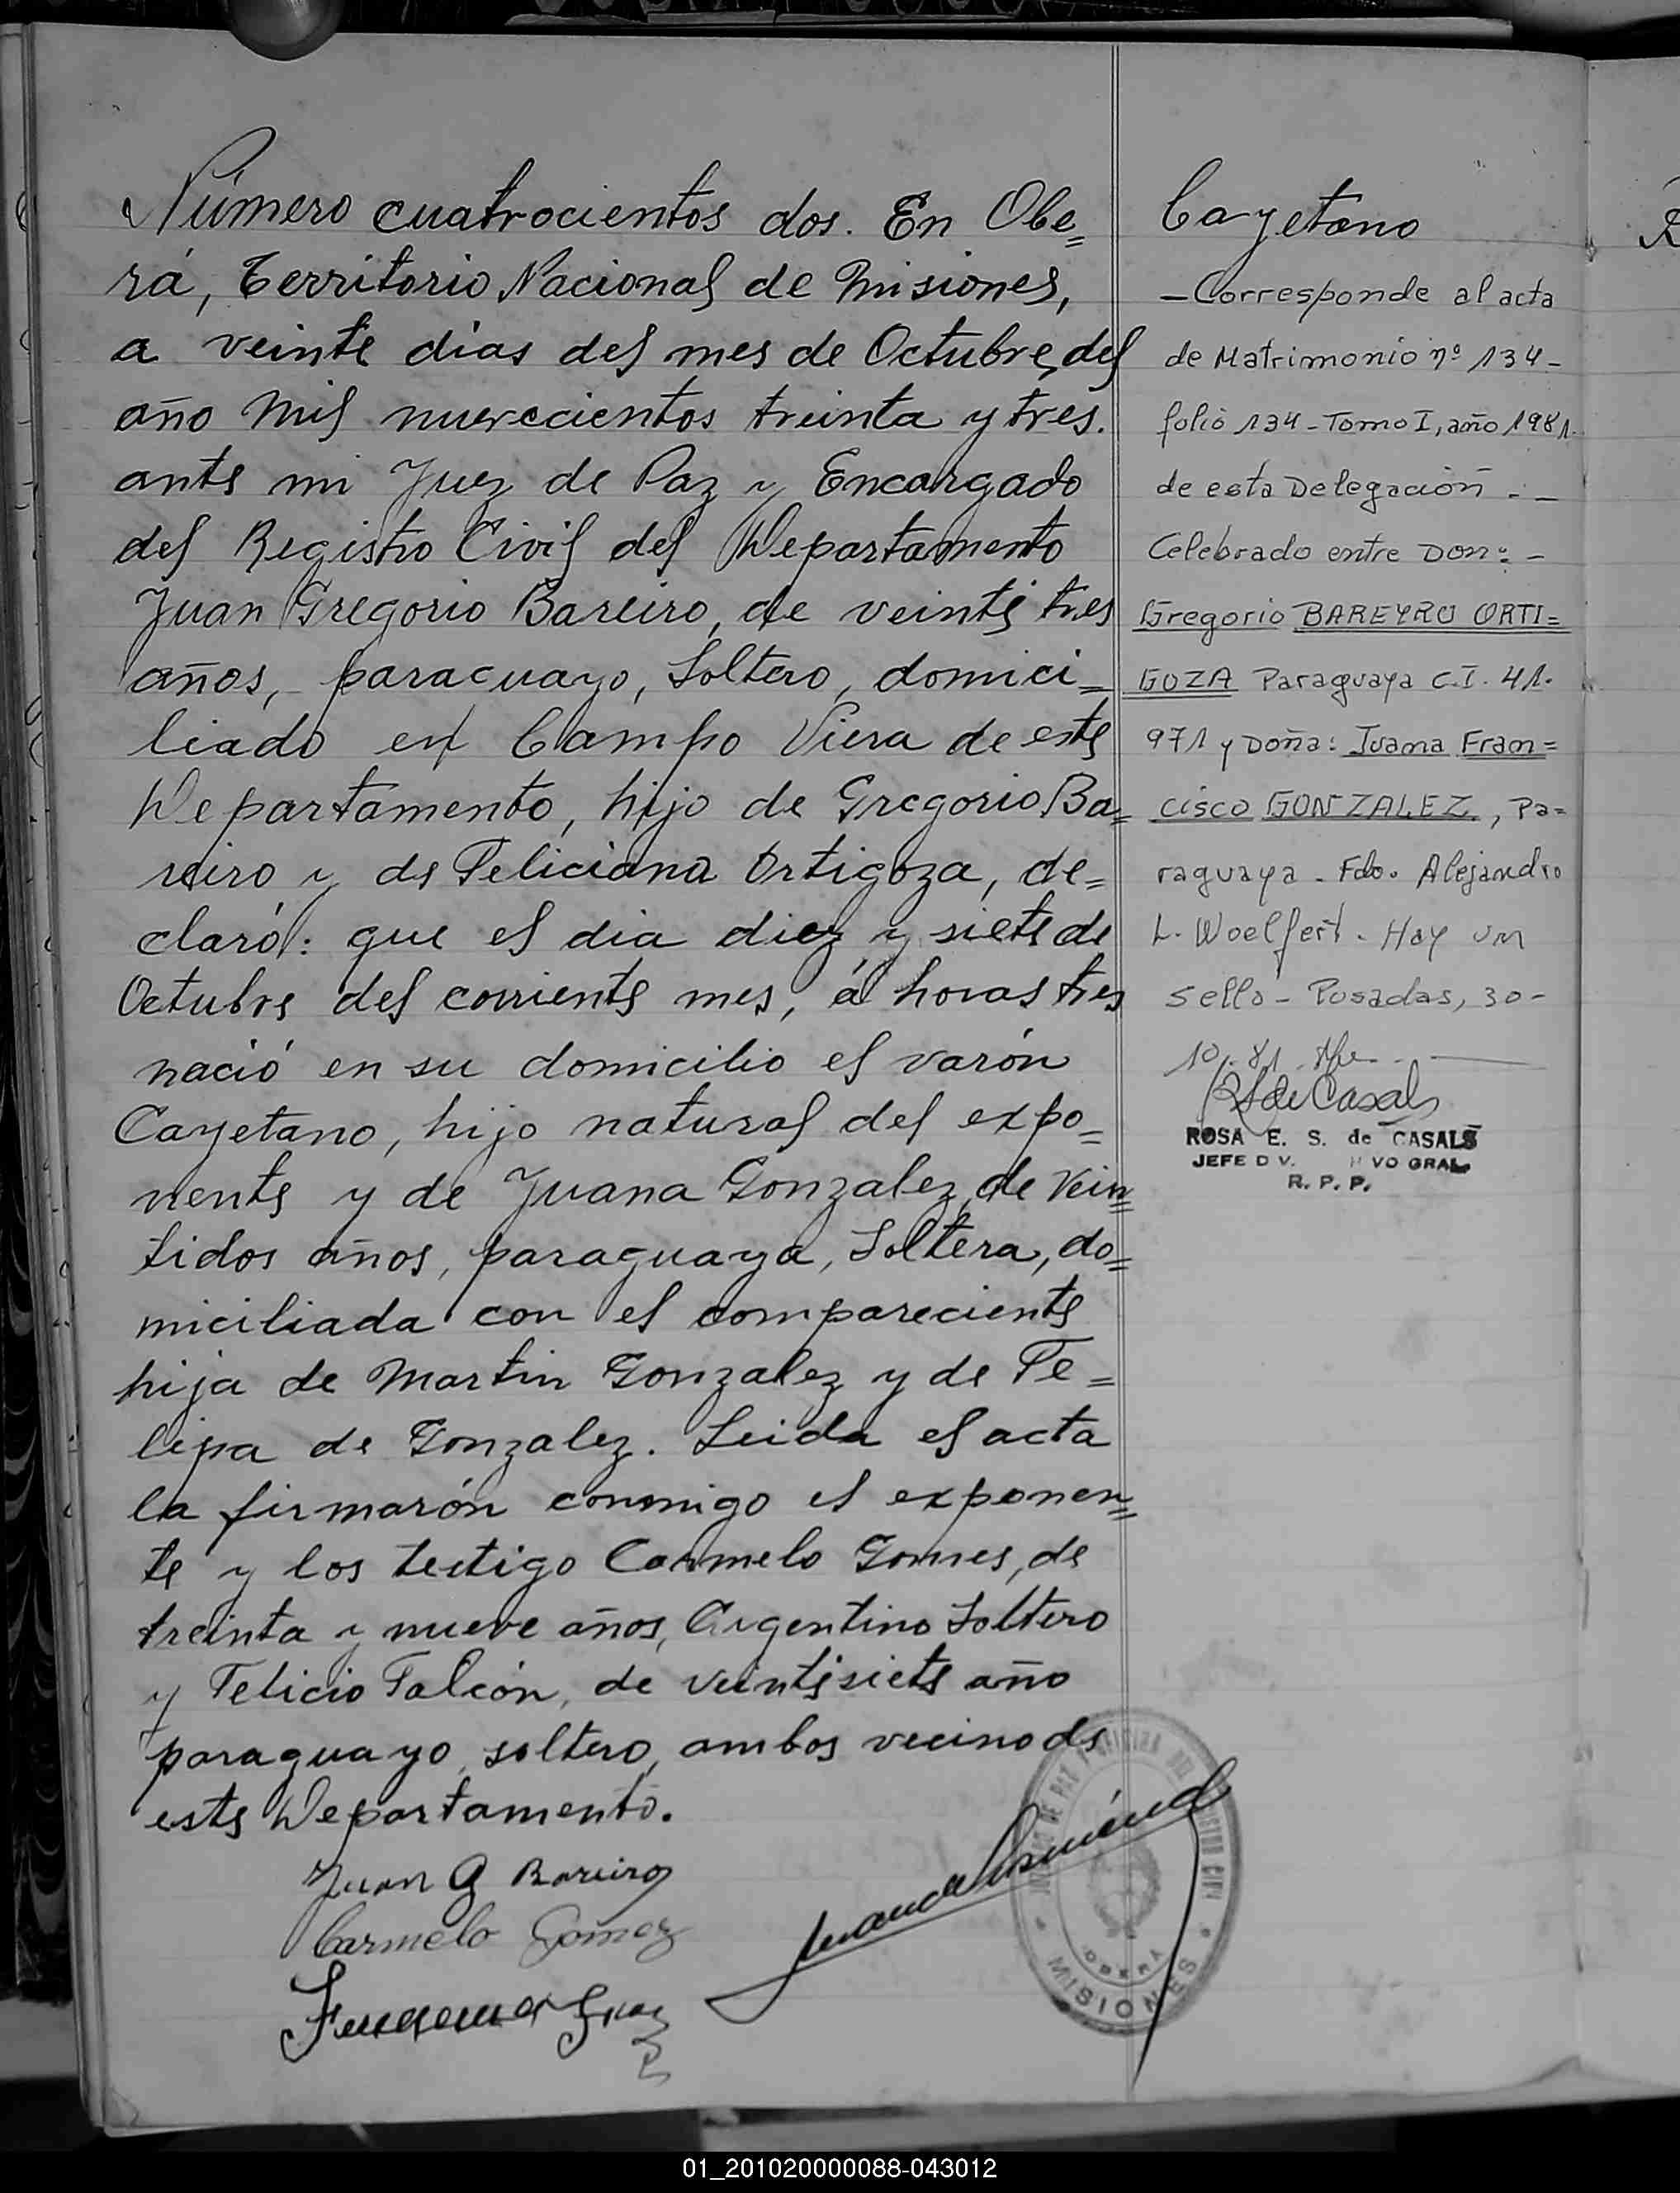 Número cuatrocientos dos. En Obe=
rá, Territorio Nacional de Misiones,
a veinte días del mes de Octubre, del
año mil nuevecientos treinta y tres.
ante mi Juez de Paz y Encargado
del Registro Civil del Departamento
Juan Gregorio Bareiro, de veinte tres
años, paraguayo, Soltero, domici=
liado en Campo Viera de este
Departamento, hijo de Gregorio Ba=
reiro y de Feliciana Ortigoza, de=
claró: que el dia diez y siete de
Octubre del corriente mes, á horas tres
nació en su domicilio el varón
Cayetano, hijo natural del expo=
nente y de Juana Gonzalez, de Vein=
tidos años, paraguaya, Soltera, do=
miciliada con el compareciente
hija de Martin Gonzalez y de Fe=
lipa de Gonzalez. Leida el acta
la firmarón conmigo el exponen=
te y los testigo Carmelo Gomes, de
treinta y nueve años, Argentino Soltero
y Felicio Falcón, de veintisiete año
paraguayo, soltero, ambos vecino de
este Departamento.
Juan G Bareiro
Carmelo Gomez
Cayetano
- Corresponde al acta
de Matrimonio nº 134-
folio 134 - Tomo I, año 1981.
de esta Delegación . -
Celebrado entre Don: -
Gregorio BAREYRO ORTI=
GOZA Paraguaya C.I. 41.
971 y Doña: Juana Fran=
cisco GONZALEZ, Pa=
raguaya. Fdo. Alejandro
L. Woelfert. Hay un
sello - Posadas, 30-
10-81.
RS de Casals
ROSA E. S. de CASALS
JEFE D V. VO GRAL
R. P. P.
DE PAZ
CIVIL
OBERA
MISIONES
01_201020000088-043012